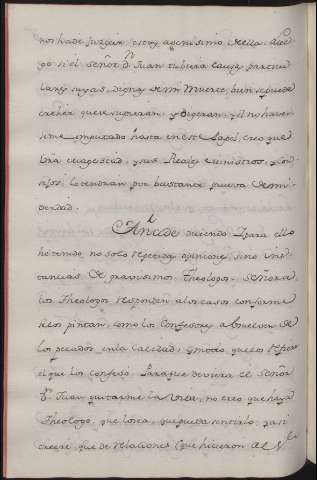 nos ha de juzgar: estoy agenisimo de ella. Luego
si el señor Dn. Juan tubiera causas particu
lares suyas dignas de mi muerte, bien se puede
creher que se supieran, y dixeran; y el no haver
seme imputado hasta en este Papel, creo que
Vra Magestad, y sus Reales Ministros, y Con
sejos, lo tendran por bastante prueva de mi
verdad.
Añade diciendo, para ello
he tenido, no solo repetidas opiniones, sino ins
tancias de gravisimos Theologos. Señora,
los Theologos responden a los casos conforme
se los pintan, como los Confesores absuelven de
los pecados en la calidad, y modo, que los refiere
el que los confesó. Para que deviera el Señor
Dn. Juan quitarme la vida, no creo que haya
Theologo, que lo sea, que pueda sentirlo; y asi
creeré, que de relaciones que hicieron al